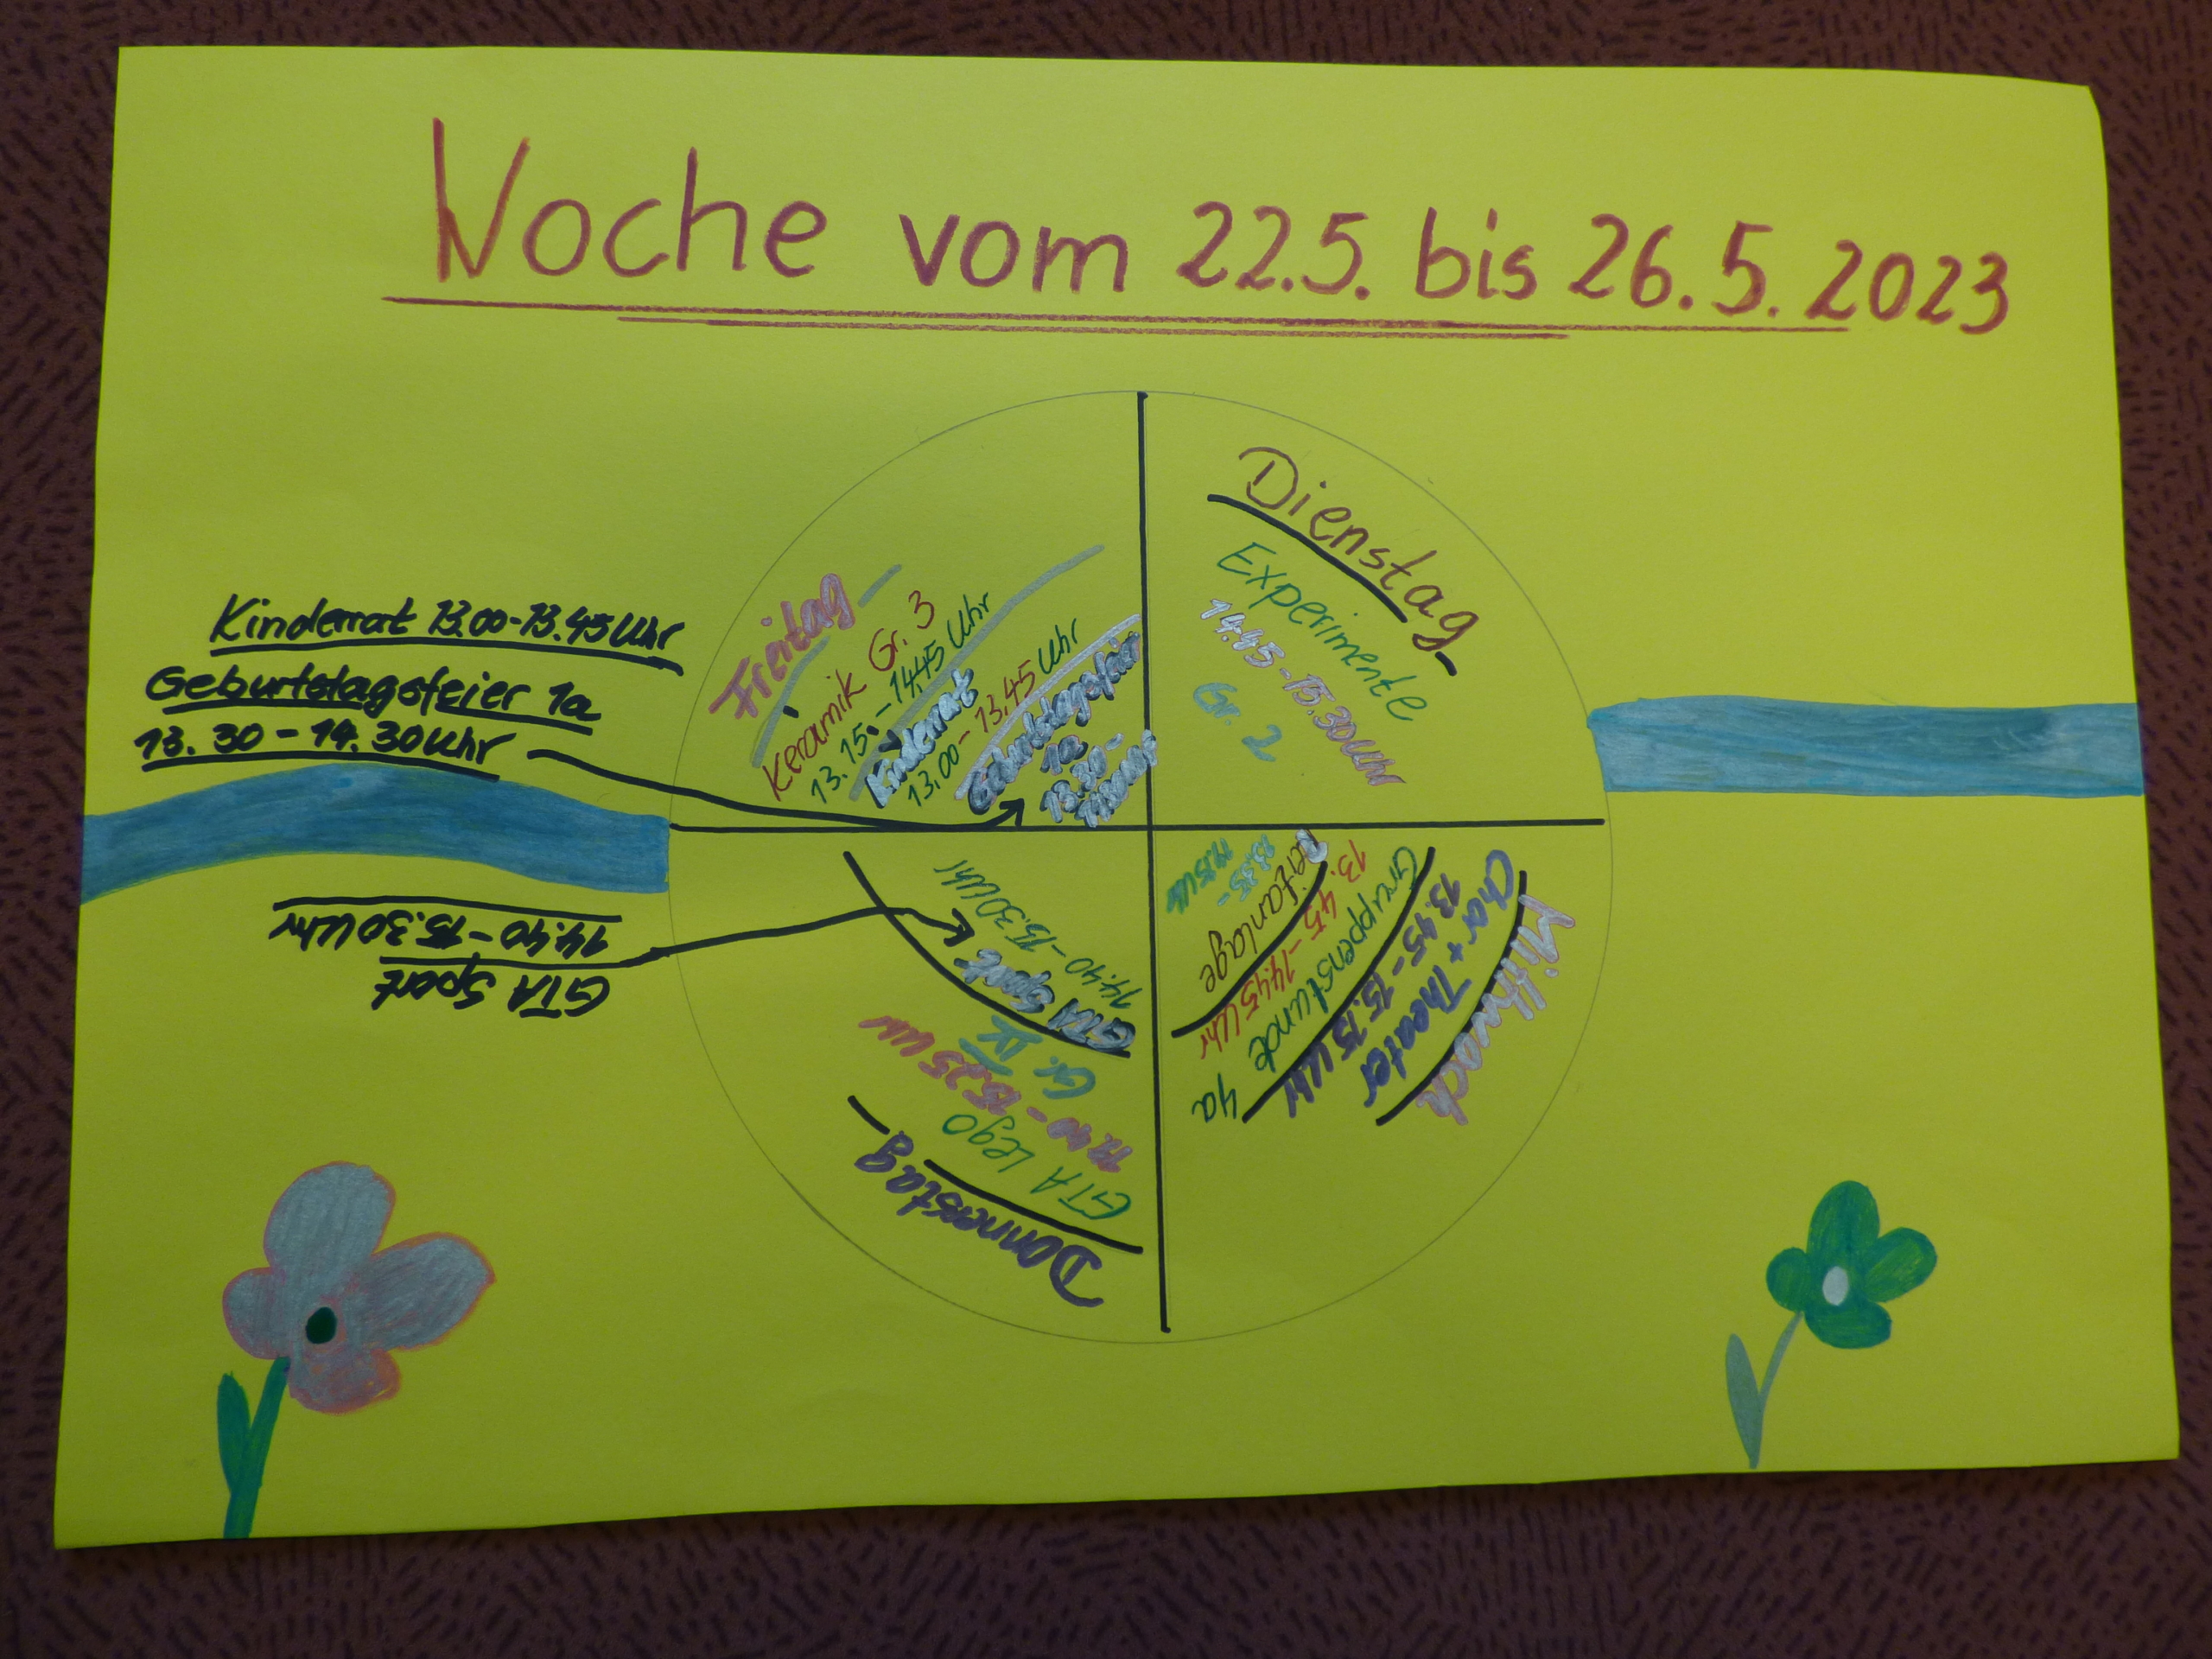 Woche vom 22.5. bis 26.5.2023
Dienstag
Experimente
14.45-15.30 Uhr
Gr. 2
Mittwoch
Chor + Theater
13.45-15.15 Uhr
Gruppenstunde 4a
13.45-14.45 Uhr
Reitanlage
Donnerstag
GTA Lego
Gr. IV
GTA Sport
14.40-15.30 Uhr
Freitag
Keramik Gr. 3
13.15-14.45 Uhr
Kinderrat
13.00-13.45 Uhr
Geburtstagsfeier
1a
13.30-
Kinderrat 13.00-13.45 Uhr
Geburtstagsfeier 1a
13.30-14.30 Uhr
GTA Sport
14.40-15.30 Uhr